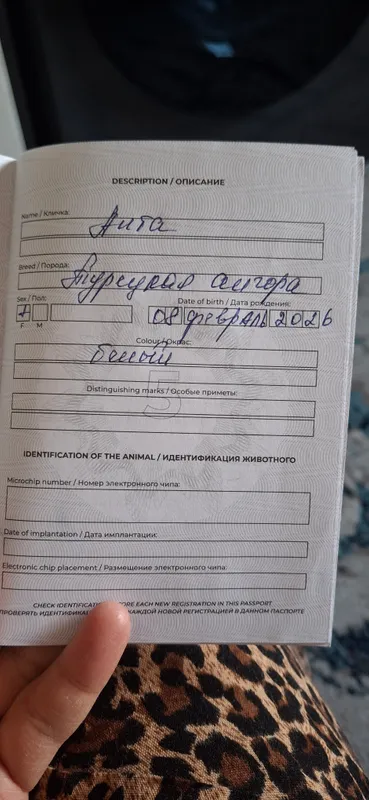 DESCRIPTION / ОПИСАНИЕ
Name / Кличка:
Анта
Breed / Порода:
Турецкая ангора
Sex / Пол: Date of birth / Дата рождения:
+ 08 февраль 2026
F M
Colour / Окрас:
белый
Distinguishing marks / Особые приметы:
5
IDENTIFICATION OF THE ANIMAL / ИДЕНТИФИКАЦИЯ ЖИВОТНОГО
Microchip number / Номер электронного чипа:
Date of implantation / Дата имплантации:
Electronic chip placement / Размещение электронного чипа:
CHECK EACH NEW REGISTRATION IN THIS PASSPORT
НОВОЙ РЕГИСТРАЦИЕЙ В ДАННОМ ПАСПОРТЕ